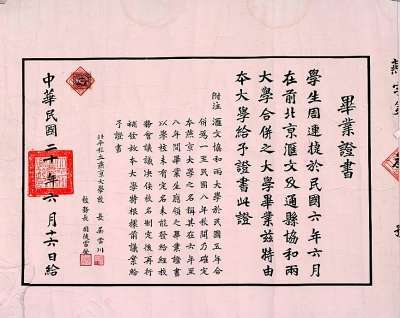 畢業證書
學生周連捷於民國六年六月
在前北京滙文及通縣協和兩
大學合併之大學畢業茲特由
本大學給予證書此證
附注 滙文協和兩大學於民國五年合
併爲一至民國八年秋間乃確定
本燕京大學之名稱其在六年至
八年間畢業生應領之畢業證書
以學校未有定名未能發給經校
務會議議决俟校名制定後再行
補發故本大學將根據前議業給
予證書
北平私立燕京大學校 長 吳雷川
校務長 司徒雷登
中華民國二十年六月十六日給